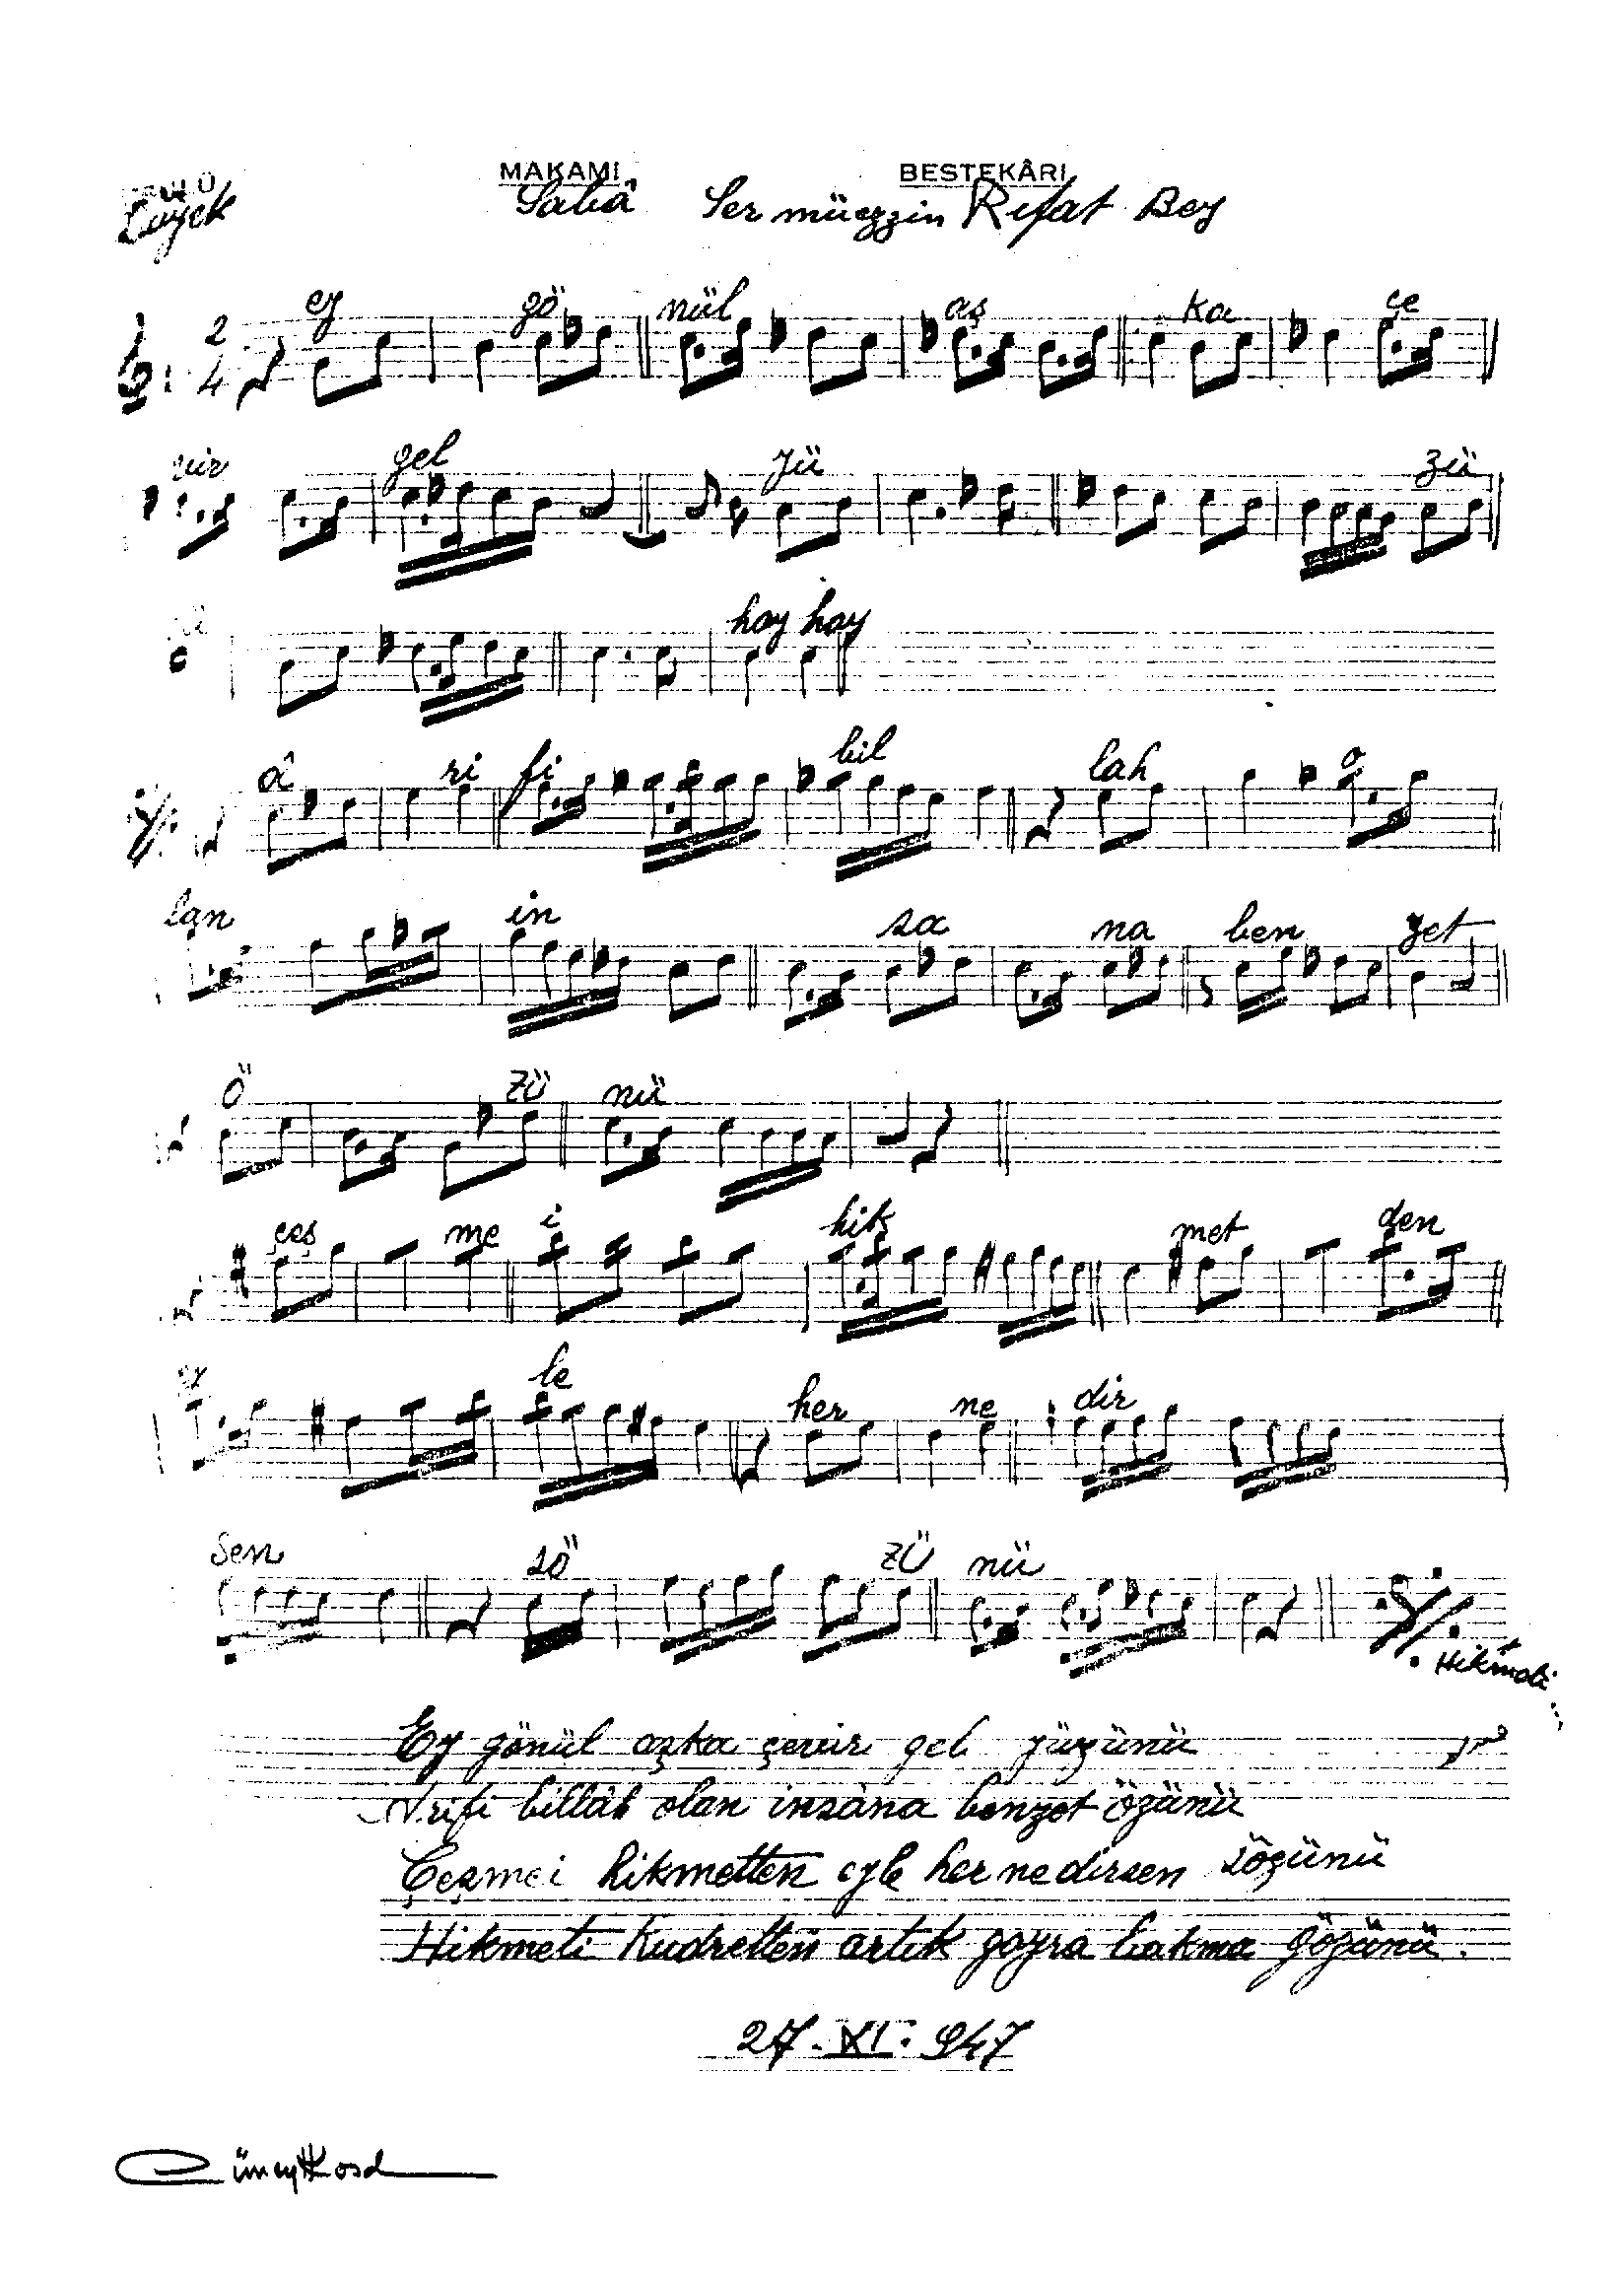 MAKAMI BESTEKÂRI
Sabâ Ser müezzin Rifat Bey
2
4
ey gö nül aş ka çe
vir gel yü zü
nü hay hay
â ri fi bil lah o
lan in sa na ben zet
ö zü nü
çeş me i hik met den
ey le her ne dir
sen sö zü nü
Hikmeti
Ey gönül aşka çevir gel yüzünü
Arifi billâh olan insâna benzet özünü
Çeşmei hikmetten eyle her nedirsen sözünü
Hikmeti Kudretten artık gayra bakma gözünü.
27.XI.947